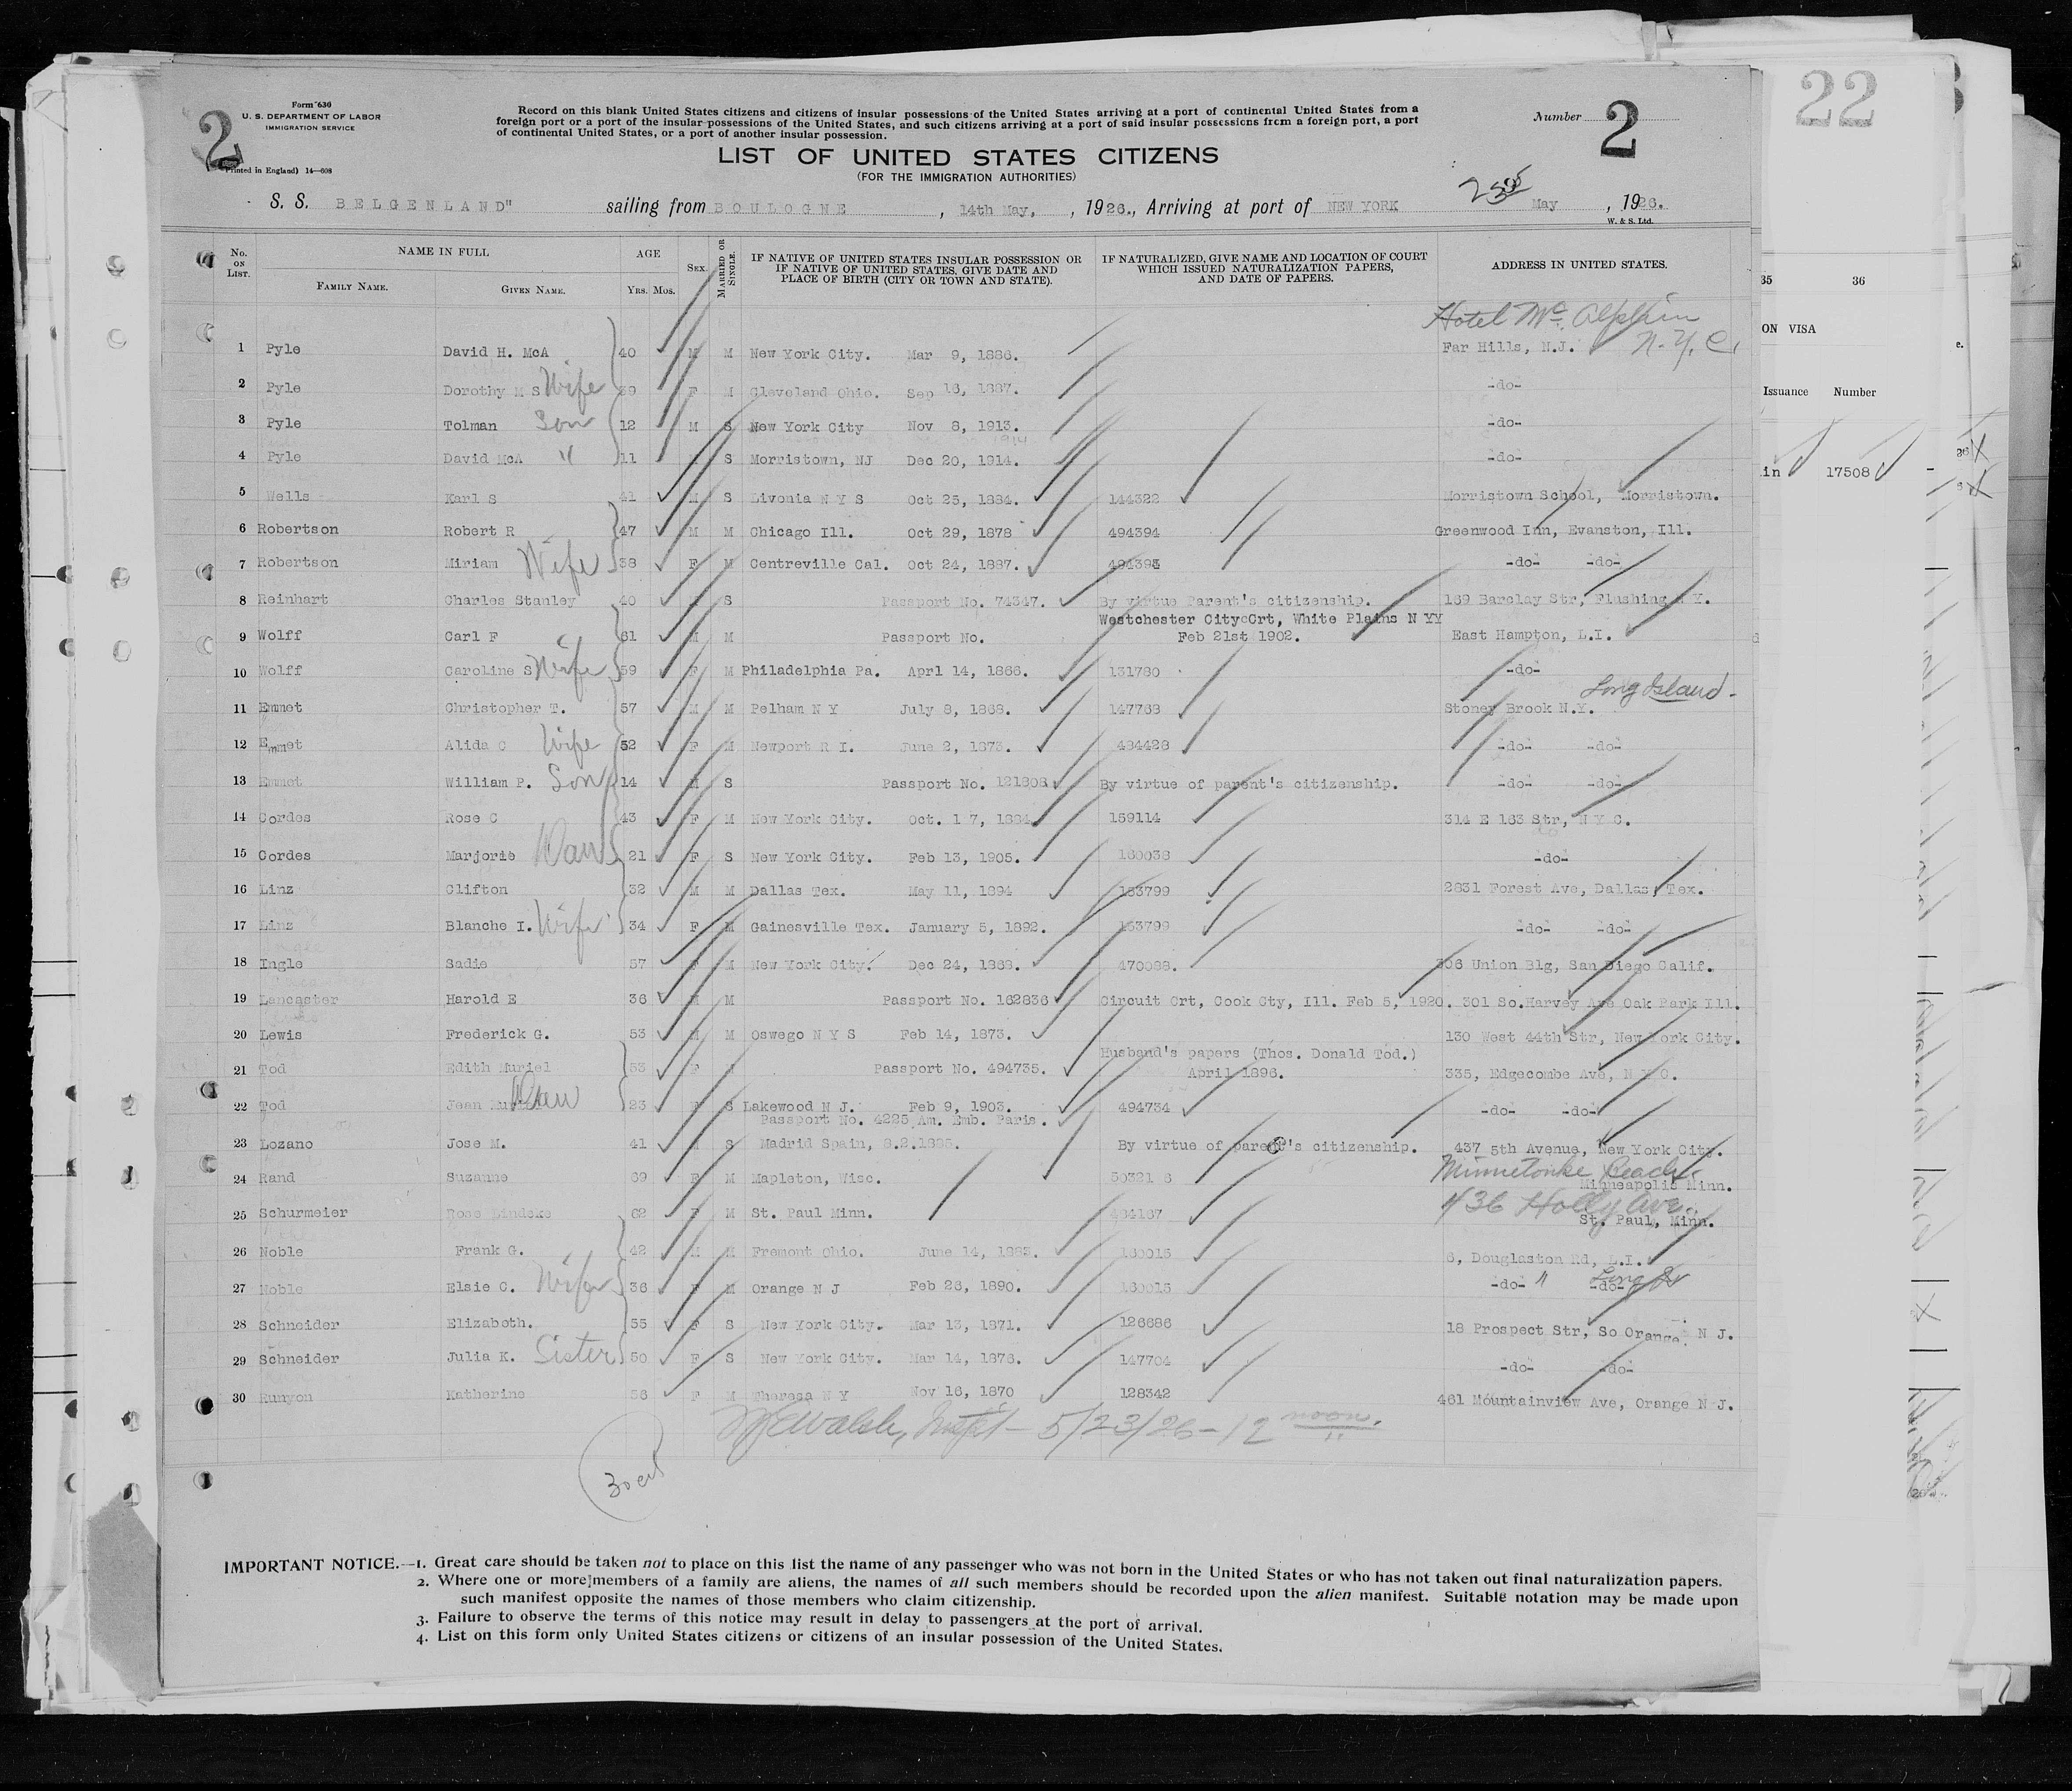 2
Form 630
U. S. DEPARTMENT OF LABOR
IMMIGRATION SERVICE
Printed in England) 14—608
Record on this blank United States citizens and citizens of insular possessions of the United States arriving at a port of continental United States from a
foreign port or a port of the insular possessions of the United States, and such citizens arriving at a port of said insular possessions from a foreign port, a port
of continental United States, or a port of another insular possession.
Number 2
LIST OF UNITED STATES CITIZENS
(FOR THE IMMIGRATION AUTHORITIES)
S. S. BELGENLAND" sailing from BOULOGNE, 14th May, , 1926., Arriving at port of NEW YORK May , 1926.
W. & S. Ltd.
No. ON LIST. NAME IN FULL FAMILY NAME. GIVEN NAME. AGE YRS. MOS. SEX. MARRIED OR SINGLE. IF NATIVE OF UNITED STATES INSULAR POSSESSION OR IF NATIVE OF UNITED STATES, GIVE DATE AND PLACE OF BIRTH (CITY OR TOWN AND STATE). IF NATURALIZED, GIVE NAME AND LOCATION OF COURT WHICH ISSUED NATURALIZATION PAPERS, AND DATE OF PAPERS. ADDRESS IN UNITED STATES.
Hotel Mc Alphin
N.Y.C.
1 Pyle David H. McA 40 M M New York City. Mar 9, 1886. Far Hills, N.J.
2 Pyle Dorothy M S Wife 39 F M Cleveland Ohio. Sep 16, 1887. -do-
3 Pyle Tolman Son 12 M S New York City Nov 8, 1913. -do-
1914
4 Pyle David McA " 11 S Morristown, NJ Dec 20, 1914. -do-
5 Wells Karl S 41 M S Livonia N Y S Oct 25, 1884. 144322 Morristown School, Morristown.
6 Robertson Robert R 47 M M Chicago Ill. Oct 29, 1878 494394 Greenwood Inn, Evanston, Ill.
7 Robertson Miriam Wife 38 F M Centreville Cal. Oct 24, 1887. -do- -do-
8 Reinhart Charles Stanley 40 S Passport No. 74347. By virtue Parent's citizenship. 169 Barclay Str, Flushing N Y.
Westchester City Crt, White Plains N YY
9 Wolff Carl F 61 M M Passport No. Feb 21st 1902. East Hampton, L.I.
10 Wolff Caroline S Wife 59 F M Philadelphia Pa. Aprl 14, 1866. 131780 -do-
Long Island
11 Emmet Christopher T. 57 M M Pelham N Y July 8, 1868. 147768 Stoney Brook N.Y.
12 Emmet Alida C Wife 52 F M Newport R I. June 2, 1873. 484428 -do- -do-
13 Emmet William P. Son 14 M S Passport No. 121808 By virtue of parent's citizenship. -do- -do-
14 Cordes Rose C 43 F M New York City. Oct. 1 7, 1884 159114 314 E 163 Str, N Y C.
15 Cordes Marjorie Dau 21 F S New York City. Feb 13, 1905. 160038 -do-
16 Linz Clifton 32 M M Dallas Tex. May 11, 1894 153799 2831 Forest Ave, Dallas, Tex.
17 Linz Blanche I. Wife 34 F M Gainesville Tex. January 5, 1892. 153799 -do- -do-
18 Ingle Sadie 57 F M New York City. Dec 24, 1868. 470088. 306 Union Blg, San Diego Calif.
19 Lancaster Harold E 36 M M Passport No. 162836 Circuit Crt, Cook Cty, Ill. Feb 5, 1920. 301 So.Harvey Ave Oak Park Ill.
20 Lewis Frederick G. 53 M M Oswego N Y S Feb 14, 1873. 130 West 44th Str, New York City.
Husband's papers (Thos. Donald Tod.)
21 Tod Edith Muriel 53 F Passport No. 494735. April 1896. 335, Edgecombe Ave, N Y C.
22 Tod Jean Dau 23 F S Lakewood N J. Feb 9, 1903. 494734 -do- -do-
Passport No. 4225 Am. Emb. Paris.
23 Lozano Jose M. 41 M S Madrid Spain, By virtue of parent's citizenship. 437 5th Avenue, New York City.
Minnetonke Beach
24 Rand Suzanne 69 F M Mapleton, Wisc. 50321 Minneapolis Minn.
436 Holly Ave.
25 Schurmeier Rose Lindeke 62 F M St. Paul Minn. St. Paul, Minn.
26 Noble Frank G. 42 M M Fremont Ohio. June 14, 1883. 160015 6, Douglaston Rd, L.I.
27 Noble Elsie C. Wife 36 F M Orange N J Feb 26, 1890. 160015 -do- " -do-
28 Schneider Elizabeth. 55 F S New York City. Mar 13, 1871. 126686 18 Prospect Str, So Orange. N J.
29 Schneider Julia K. Sister 50 F S New York City. Mar 14, 1876. 147704 -do- -do-
30 Runyon Katherine 56 F M Theresa N Y Nov 16, 1870 128342 461 Mountainview Ave, Orange N J.
5/23/26 - 12 noon.
IMPORTANT NOTICE.—1. Great care should be taken not to place on this list the name of any passenger who was not born in the United States or who has not taken out final naturalization papers.
2. Where one or more members of a family are aliens, the names of all such members should be recorded upon the alien manifest. Suitable notation may be made upon
such manifest opposite the names of those members who claim citizenship.
3. Failure to observe the terms of this notice may result in delay to passengers at the port of arrival.
4. List on this form only United States citizens or citizens of an insular possession of the United States.
22
35 36
ON VISA
Issuance Number
in 17508